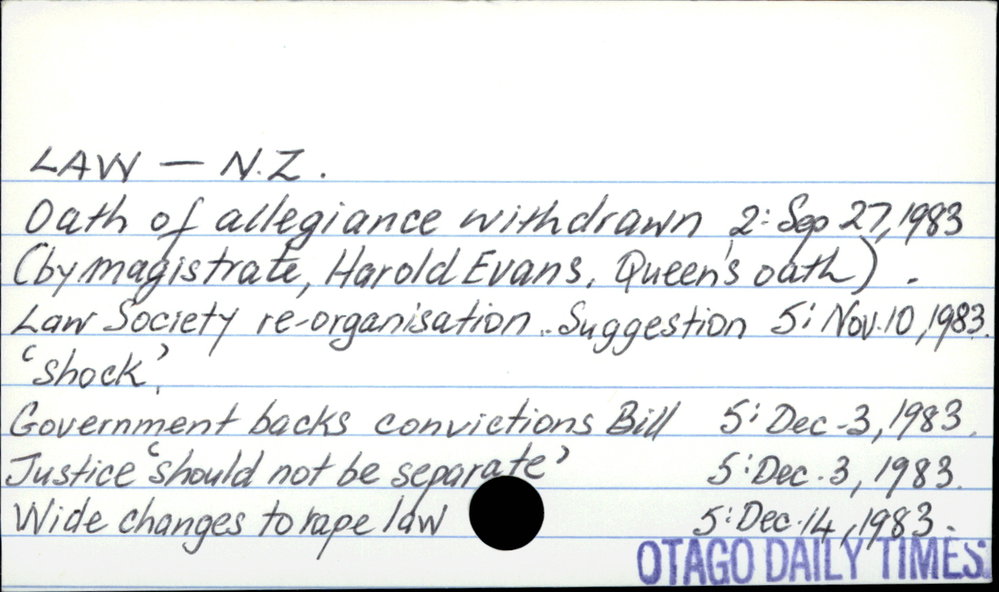 LAW — N.Z.
Oath of allegiance withdrawn 2: Sep 27, 1983
(by magistrate, Harold Evans. Queen's oath).
Law Society re-organisation. Suggestion 5: Nov. 10, 1983.
'shock'.
Government backs convictions Bill 5: Dec. 3, 1983.
Justice 'should not be separate' 5: Dec. 3, 1983.
Wide changes to rape law 5: Dec. 14, 1983.
OTAGO DAILY TIMES